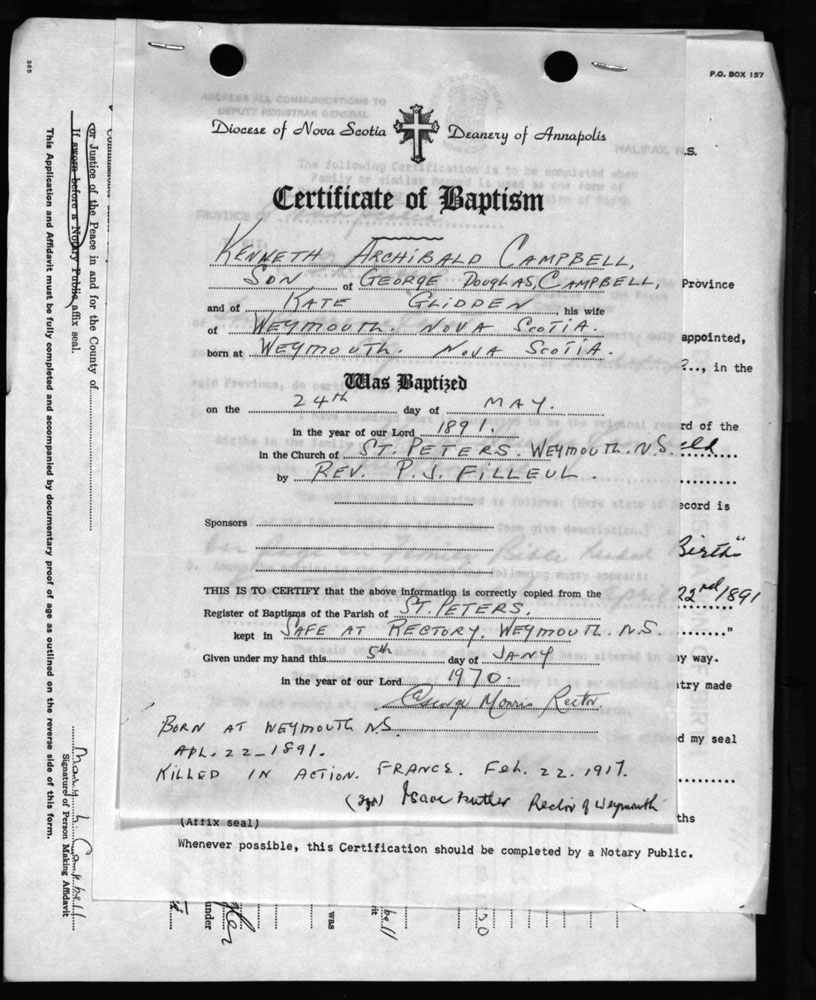 365
P.O. BOX 157
ADDRESS ALL COMMUNICATIONS TO
DEPUTY REGISTRAR GENERAL
HALIFAX, N.S.
Diocese of Nova Scotia Deanery of Annapolis
The following Certification is to be completed when
Family or similar Record is used as one form of
Certificate of Baptism
PROVINCE OF
KENNETH ARCHIBALD CAMPBELL,
SON of GEORGE DOUGLAS, CAMPBELL,
Province
and of KATE GLIDDEN, his wife
of WEYMOUTH. NOVA SCOTIA.
appointed,
born at WEYMOUTH. NOVA SCOTIA.
?.., in the
Was Baptized
on the 24th day of MAY.
in the year of our Lord 1891.
rd of the
in the Church of ST. PETERS. WEYMOUTH. N.S.
eld
by REV. P. J. FILLEUL.
ecord is
Sponsors
Birth"
THIS IS TO CERTIFY that the above information is correctly copied from the
22nd/1891
Register of Baptisms of the Parish of ST. PETERS.
kept in SAFE AT RECTORY. WEYMOUTH. N.S.
"
Given under my hand this 5th day of JANY
ny way.
in the year of our Lord 1970.
try made
George Morris Rector
BORN AT WEYMOUTH N.S.
APL. 22-1891.
d my seal
KILLED IN ACTION. FRANCE. Feb. 22. 1917.
(sgn) Isaac Butler Rector of Weymouth
ths
(Affix seal)
Whenever possible, this Certification should be completed by a Notary Public.
or Justice of the Peace in and for the County of
If sworn before a Notary Public, affix seal.
This Application and Affidavit must be fully completed and accompanied by documentary proof of age as outlined on the reverse side of this form.
Campbell
Signature of Person Making Affidavit
under
was
bell